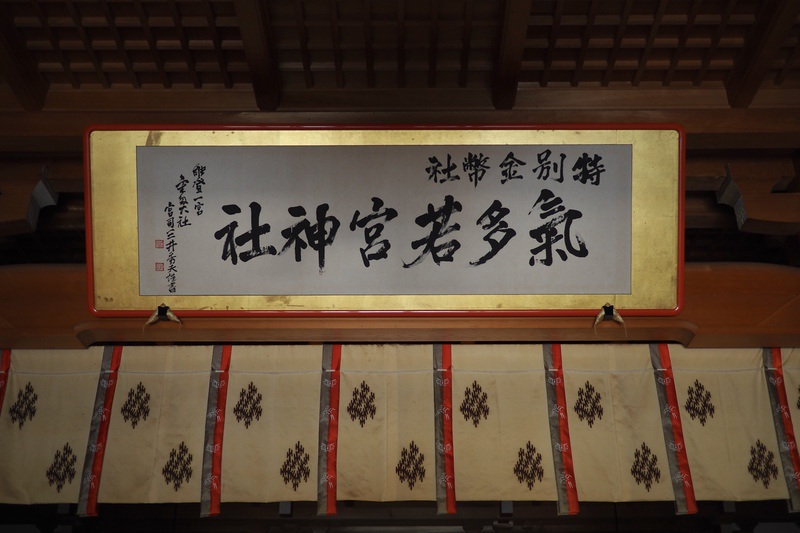 特別金幣社
氣多若宮神社
能登一宮
氣多大社
宮司三井秀夫謹書